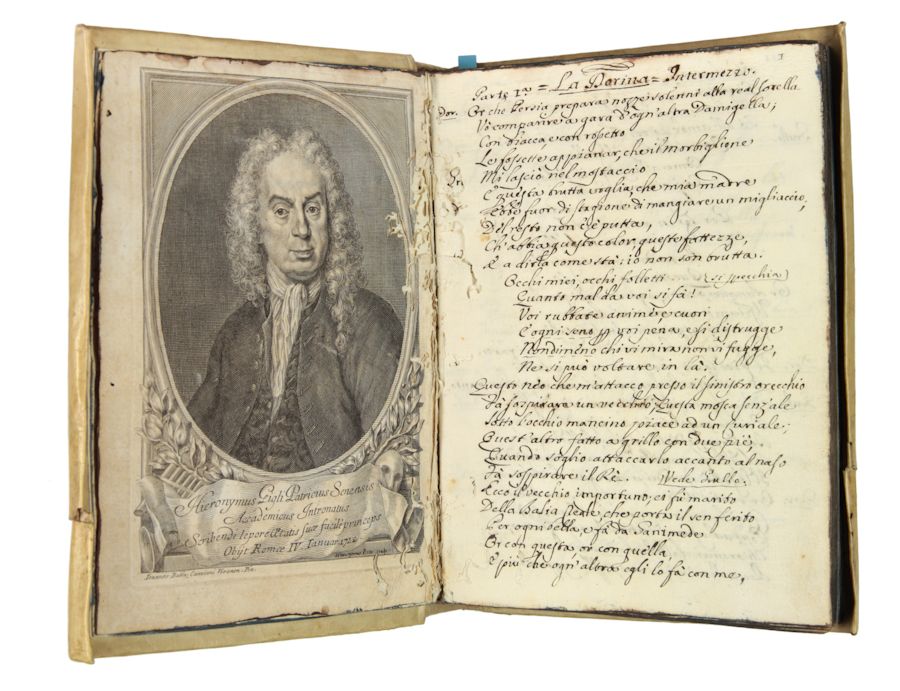 Hieronymus Gigli Patricius Senensis
Academicus Intronatus
Scribendi lepore ætatis suæ facile princeps
Obijt Romæ IV. Ianuar.
1
Parte 1ª = La Dorina = Intermezzo.
Dor. Or che Persia prepara nozze solenni alla real sorella
Vò comparire a gara d'ogn'altra Damigella;
Con biacca, e con rossetto
Le fossette appianar, che il morbiglione
Mi lasciò nel mostaccio
E questa brutta voglia, che mia madre
fuor di stagione di mangiare un migliaccio,
Del resto non c'è putta,
Ch'abbia questo color, queste fattezze,
E a dirla come sta; io non son brutta.
Occhi miei, occhi folletti (si specchia)
Quanto mal da voi si fà!
Voi rubbate anime, e cuori
E ogni seno p voi pena, e si distrugge
Nondimeno chi vi mira non vi fugge,
Ne si può voltare in là.
Questo neo che m'attacco presso il sinistro orecchio
Fà sospirare un vecchio, Questa mosca senz'ale
Sotto l'occhio mancino piace ad un Curiale;
Quest'altro fatto a grillo con due piè.
Quando soglio attaccarlo accanto al naso
Fà sospirare il Rè. Vede Grullo.
Ecco il vecchio importuno; ei fù marito
Della Balia Reale, che porta il sen ferito
Per ogni bella, e fà da Ganimede
Or con questa or con quella,
E più che ogn'altra egli lo fà con me,